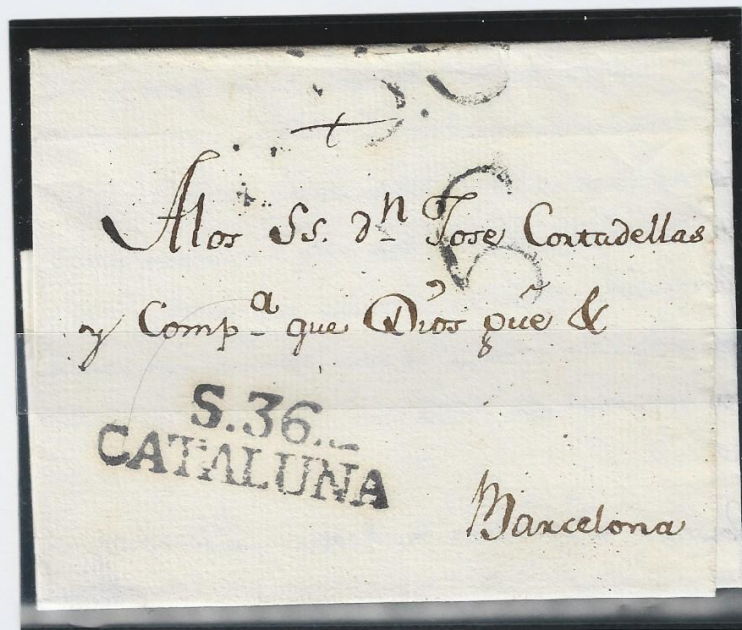 6
Alos Ss. dⁿ Jose Cortadellas
y Compª que Dios gũe &
S.36.
CATALUNA
Barcelona